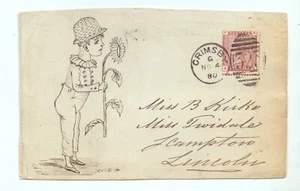 GRIMSBY
G
NO 4
80
Miss B Kirke
Miss Twidale
Scampton
Lincoln